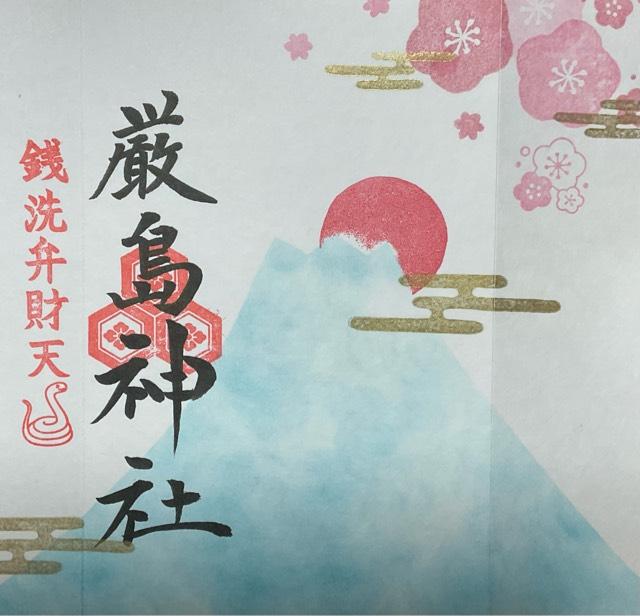 厳島神社
銭洗弁財天